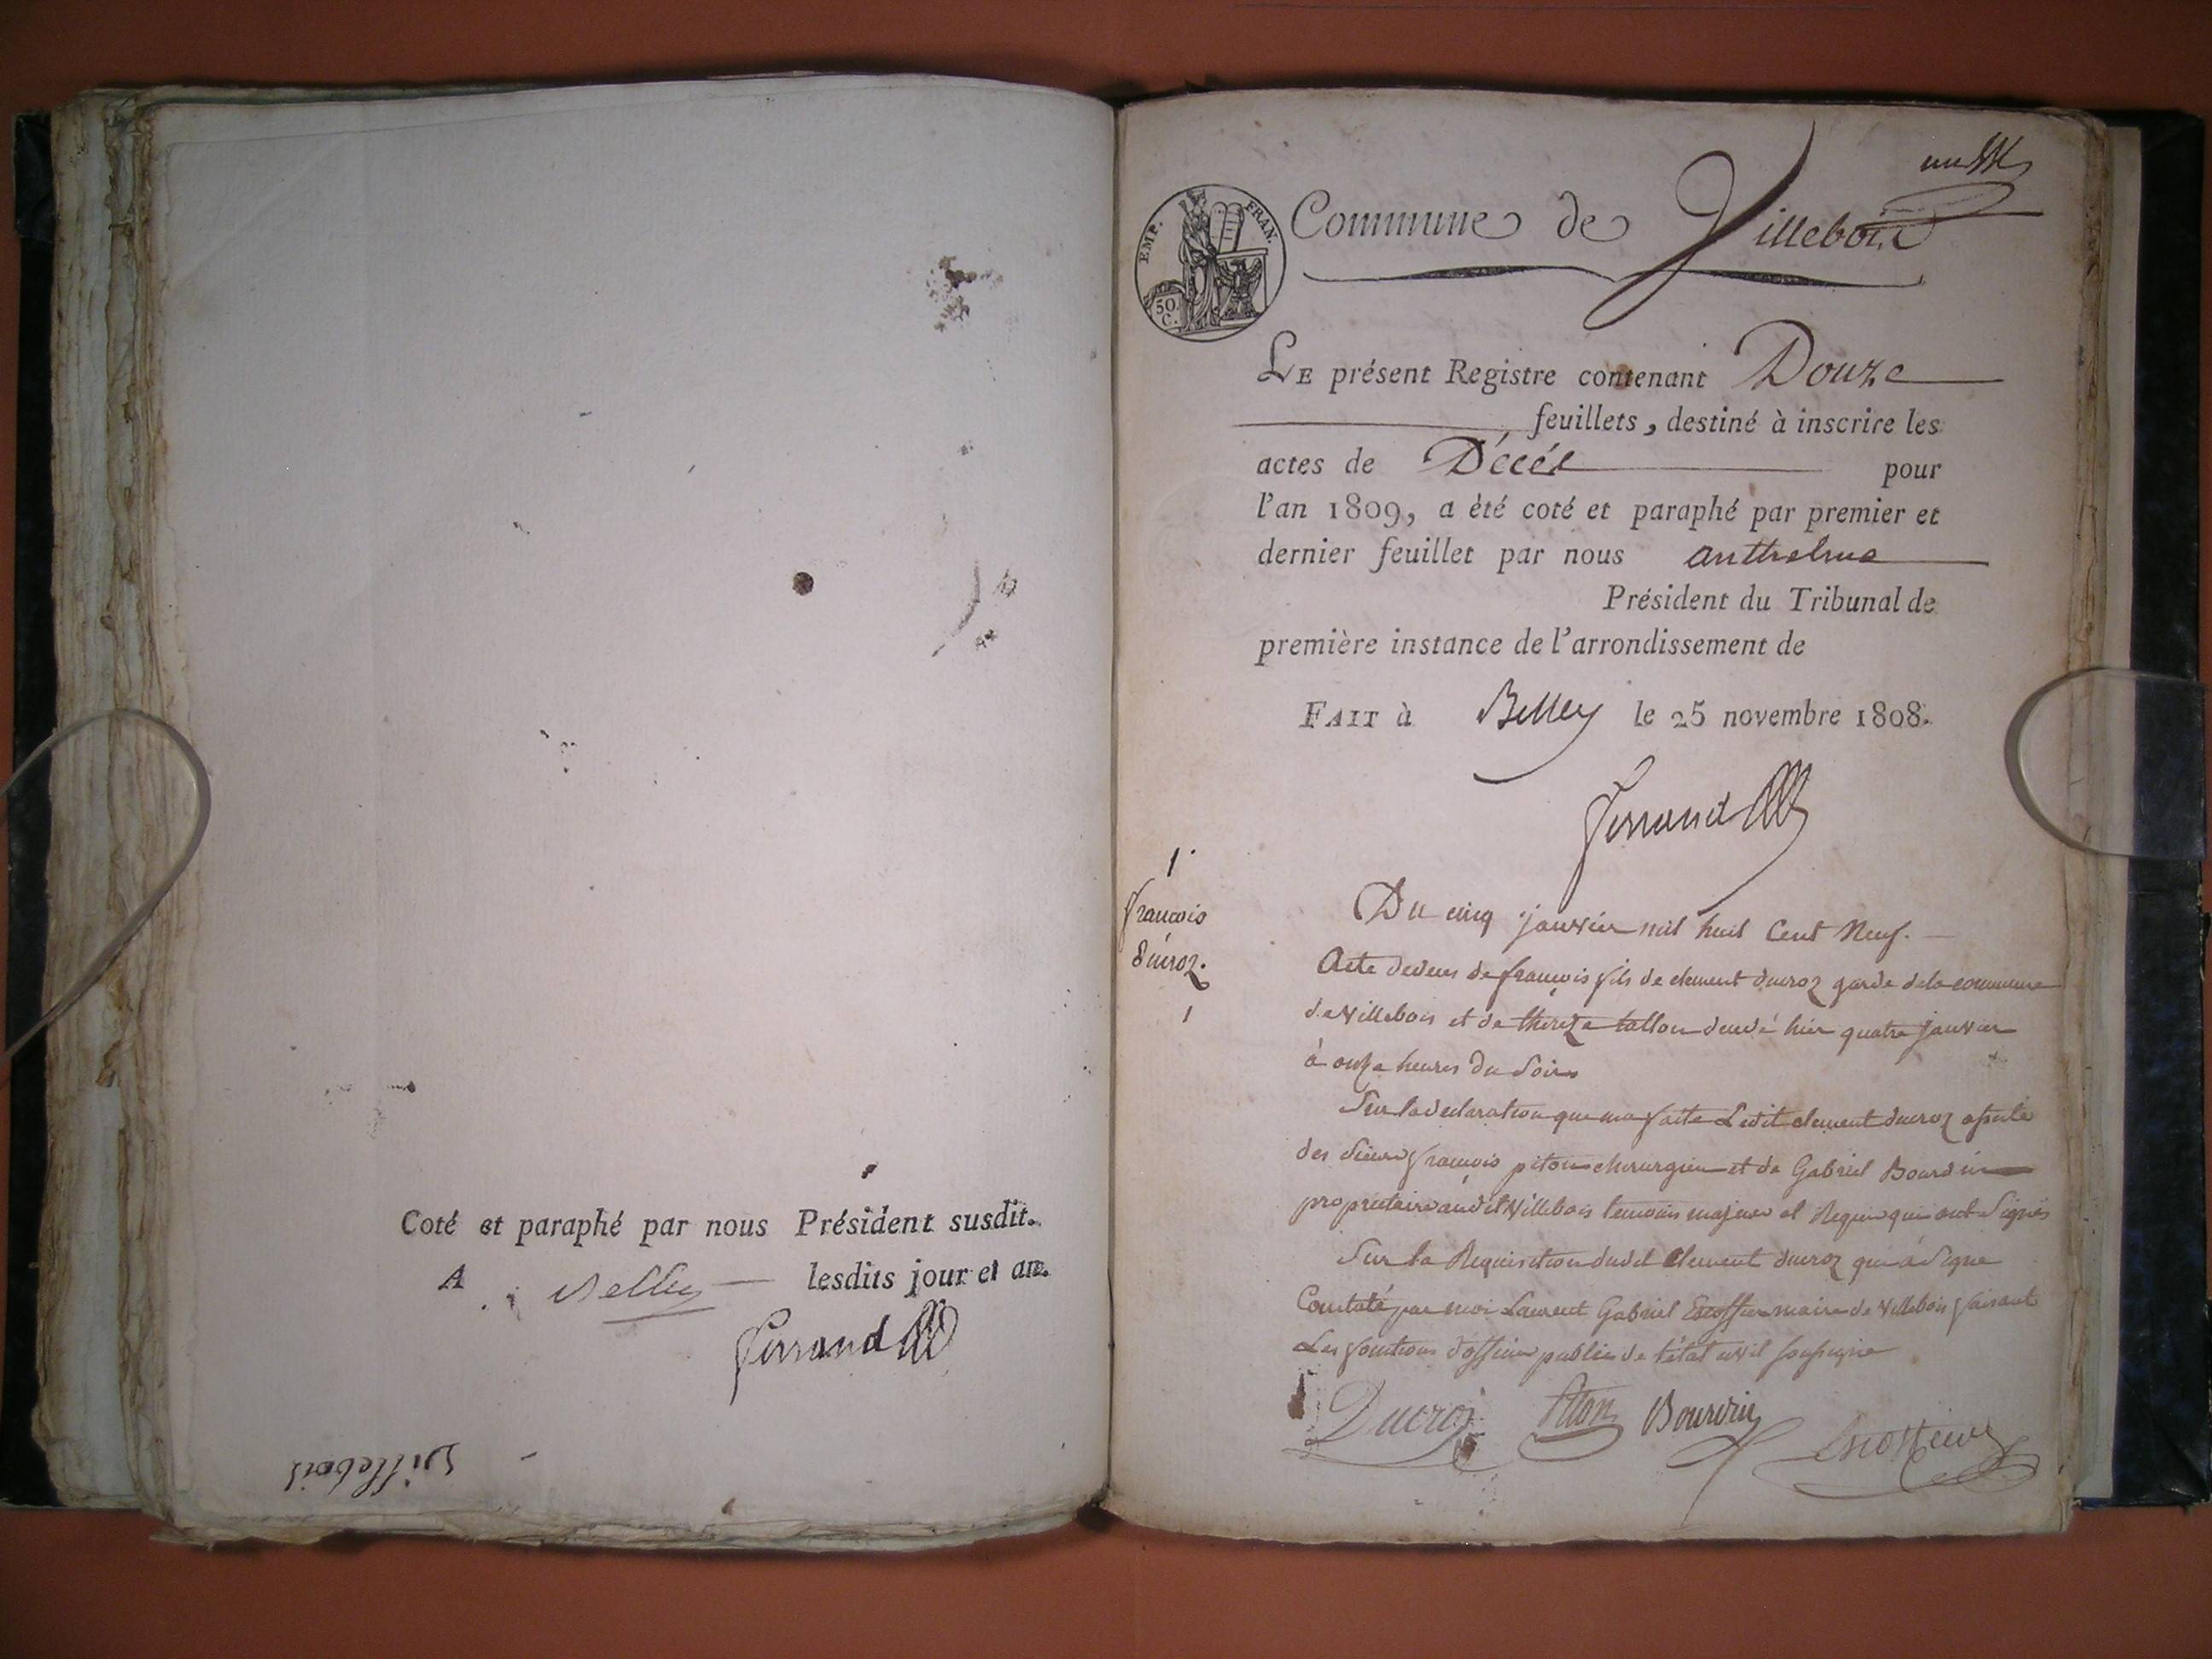 Coté et paraphé par nous Président susdit.
A Belley lesdits jour et an.
Ferrand
Villebois
un
EMP. FRAN.
50 C.
Commune de Villebois
LE présent Registre contenant Douze
feuillets, destiné à inscrire les
actes de Décés pour
l'an 1809, a èté coté et paraphé par premier et
dernier feuillet par nous anthelme
Président du Tribunal de
première instance de l'arrondissement de
FAIT à Belley le 25 novembre 1808.
Ferrand
1.
francois
Ducroz.
1
Du cinq janvier mil huit Cent Neuf.
Acte deces de francois fils de clement ducroz garde de la commune
de Villebois et de théreze tallon decedé hier quatre janvier
à onze heures du Soir
Sur la declaration que ma faite Ledit clement ducroz assisté
des Sieurs francois piton chirurgien et de Gabriel Bourdin
proprietaire audit Villebois temoins majeurs et Requis qui ont Signés
Sur la Requisition dudit Clement ducroz qui à Signe
Constaté par moi Laurent Gabriel Escoffier maire de Villebois faisant
Les fonctions d'officier public de l'état civil soussigne
Ducroz Piton Bourdin Escoffier